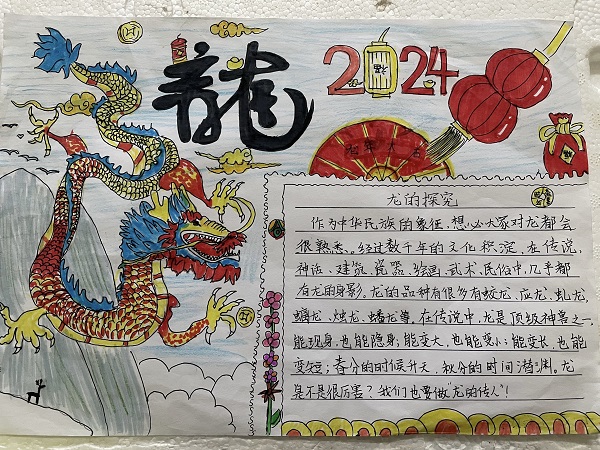 龍
2024
福
龙年大吉
福
龙的探究
作为中华民族的象征，想必大家对龙都会
很熟悉。经过数千年的文化积淀，在传说、
神话、建筑、瓷器、绘画、武术、民俗中，几乎都
有龙的身影。龙的品种有很多有蛟龙、应龙、虬龙、
螭龙、烛龙、蟠龙等。在传说中，龙是顶级神兽之一，
能现身，也能隐身；能变大，也能变小；能变长，也能
变短；春分的时候升天，秋分的时间潜渊。龙
是不是很厉害？我们也要做“龙的传人”！